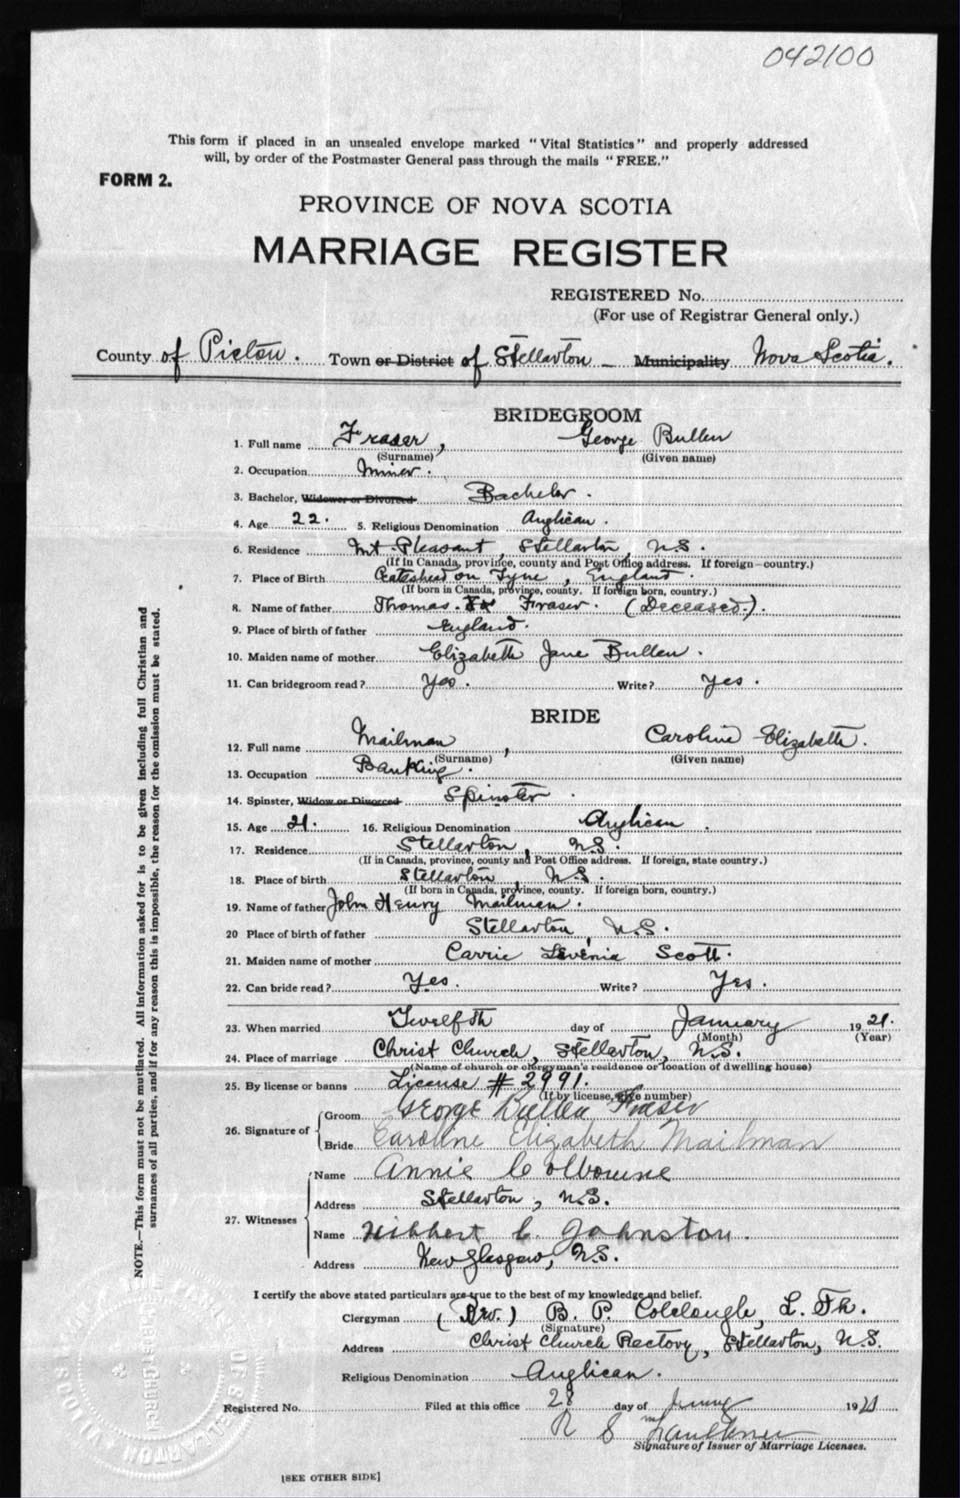 042100
This form if placed in an unsealed envelope marked "Vital Statistics" and properly addressed
will, by order of the Postmaster General pass through the mails "FREE."
FORM 2.
PROVINCE OF NOVA SCOTIA
MARRIAGE REGISTER
REGISTERED No.
(For use of Registrar General only.)
County of Pictou. Town or District of Stellarton - Municipality Nova Scotia.
BRIDEGROOM
1. Full name Fraser, George Bullen
(Surname) (Given name)
2. Occupation Miner.
3. Bachelor, Widower or Divorced Bachelor.
4. Age 22. 5. Religious Denomination Anglican.
6. Residence Mt. Pleasant, Stellarton, N.S.
(If in Canada, province, county and Post Office address. If foreign—country.)
7. Place of Birth Gateshead on Tyne, England.
(If born in Canada, province, county. If foreign born, country.)
8. Name of father Thomas. Fraser. (Deceased.).
9. Place of birth of father England.
10. Maiden name of mother Elizabeth Jane Bullen.
11. Can bridegroom read? Yes. Write? Yes.
BRIDE
12. Full name Mailman, Caroline Elizabeth.
(Surname) (Given name)
13. Occupation Banking.
14. Spinster, Widow or Divorced Spinster.
15. Age 21. 16. Religious Denomination Anglican.
17. Residence Stellarton, N.S.
(If in Canada, province, county and Post Office address. If foreign, state country.)
18. Place of birth Stellarton, N.S.
(If born in Canada, province, county. If foreign born, country.)
19. Name of father John Henry Mailman.
20 Place of birth of father Stellarton, N.S.
21. Maiden name of mother Carrie Levenia Scott.
22. Can bride read? Yes. Write? Yes.
23. When married Twelfth day of January 1921.
(Month) (Year)
24. Place of marriage Christ Church, Stellarton, N.S.
(Name of church or clergyman's residence or location of dwelling house)
25. By license or banns License #2991.
(If by license, give number)
26. Signature of
Groom George Bullen Fraser
Bride Caroline Elizabeth Mailman
27. Witnesses
Name Annie Colbourne
Address Stellarton, N.S.
Name Hibbert C. Johnston.
Address New Glasgow, N.S.
I certify the above stated particulars are true to the best of my knowledge and belief.
Clergyman (Rev.) B. P. Colclough, L. Th.
(Signature)
Address Christ Church Rectory, Stellarton, N.S.
Religious Denomination Anglican.
Registered No. Filed at this office 28 day of 1921
R S
Signature of Issuer of Marriage Licenses.
[SEE OTHER SIDE]
NOTE.—This form must not be mutilated. All information asked for is to be given including full Christian and
surnames of all parties, and if for any reason this is impossible, the reason for the omission must be stated.